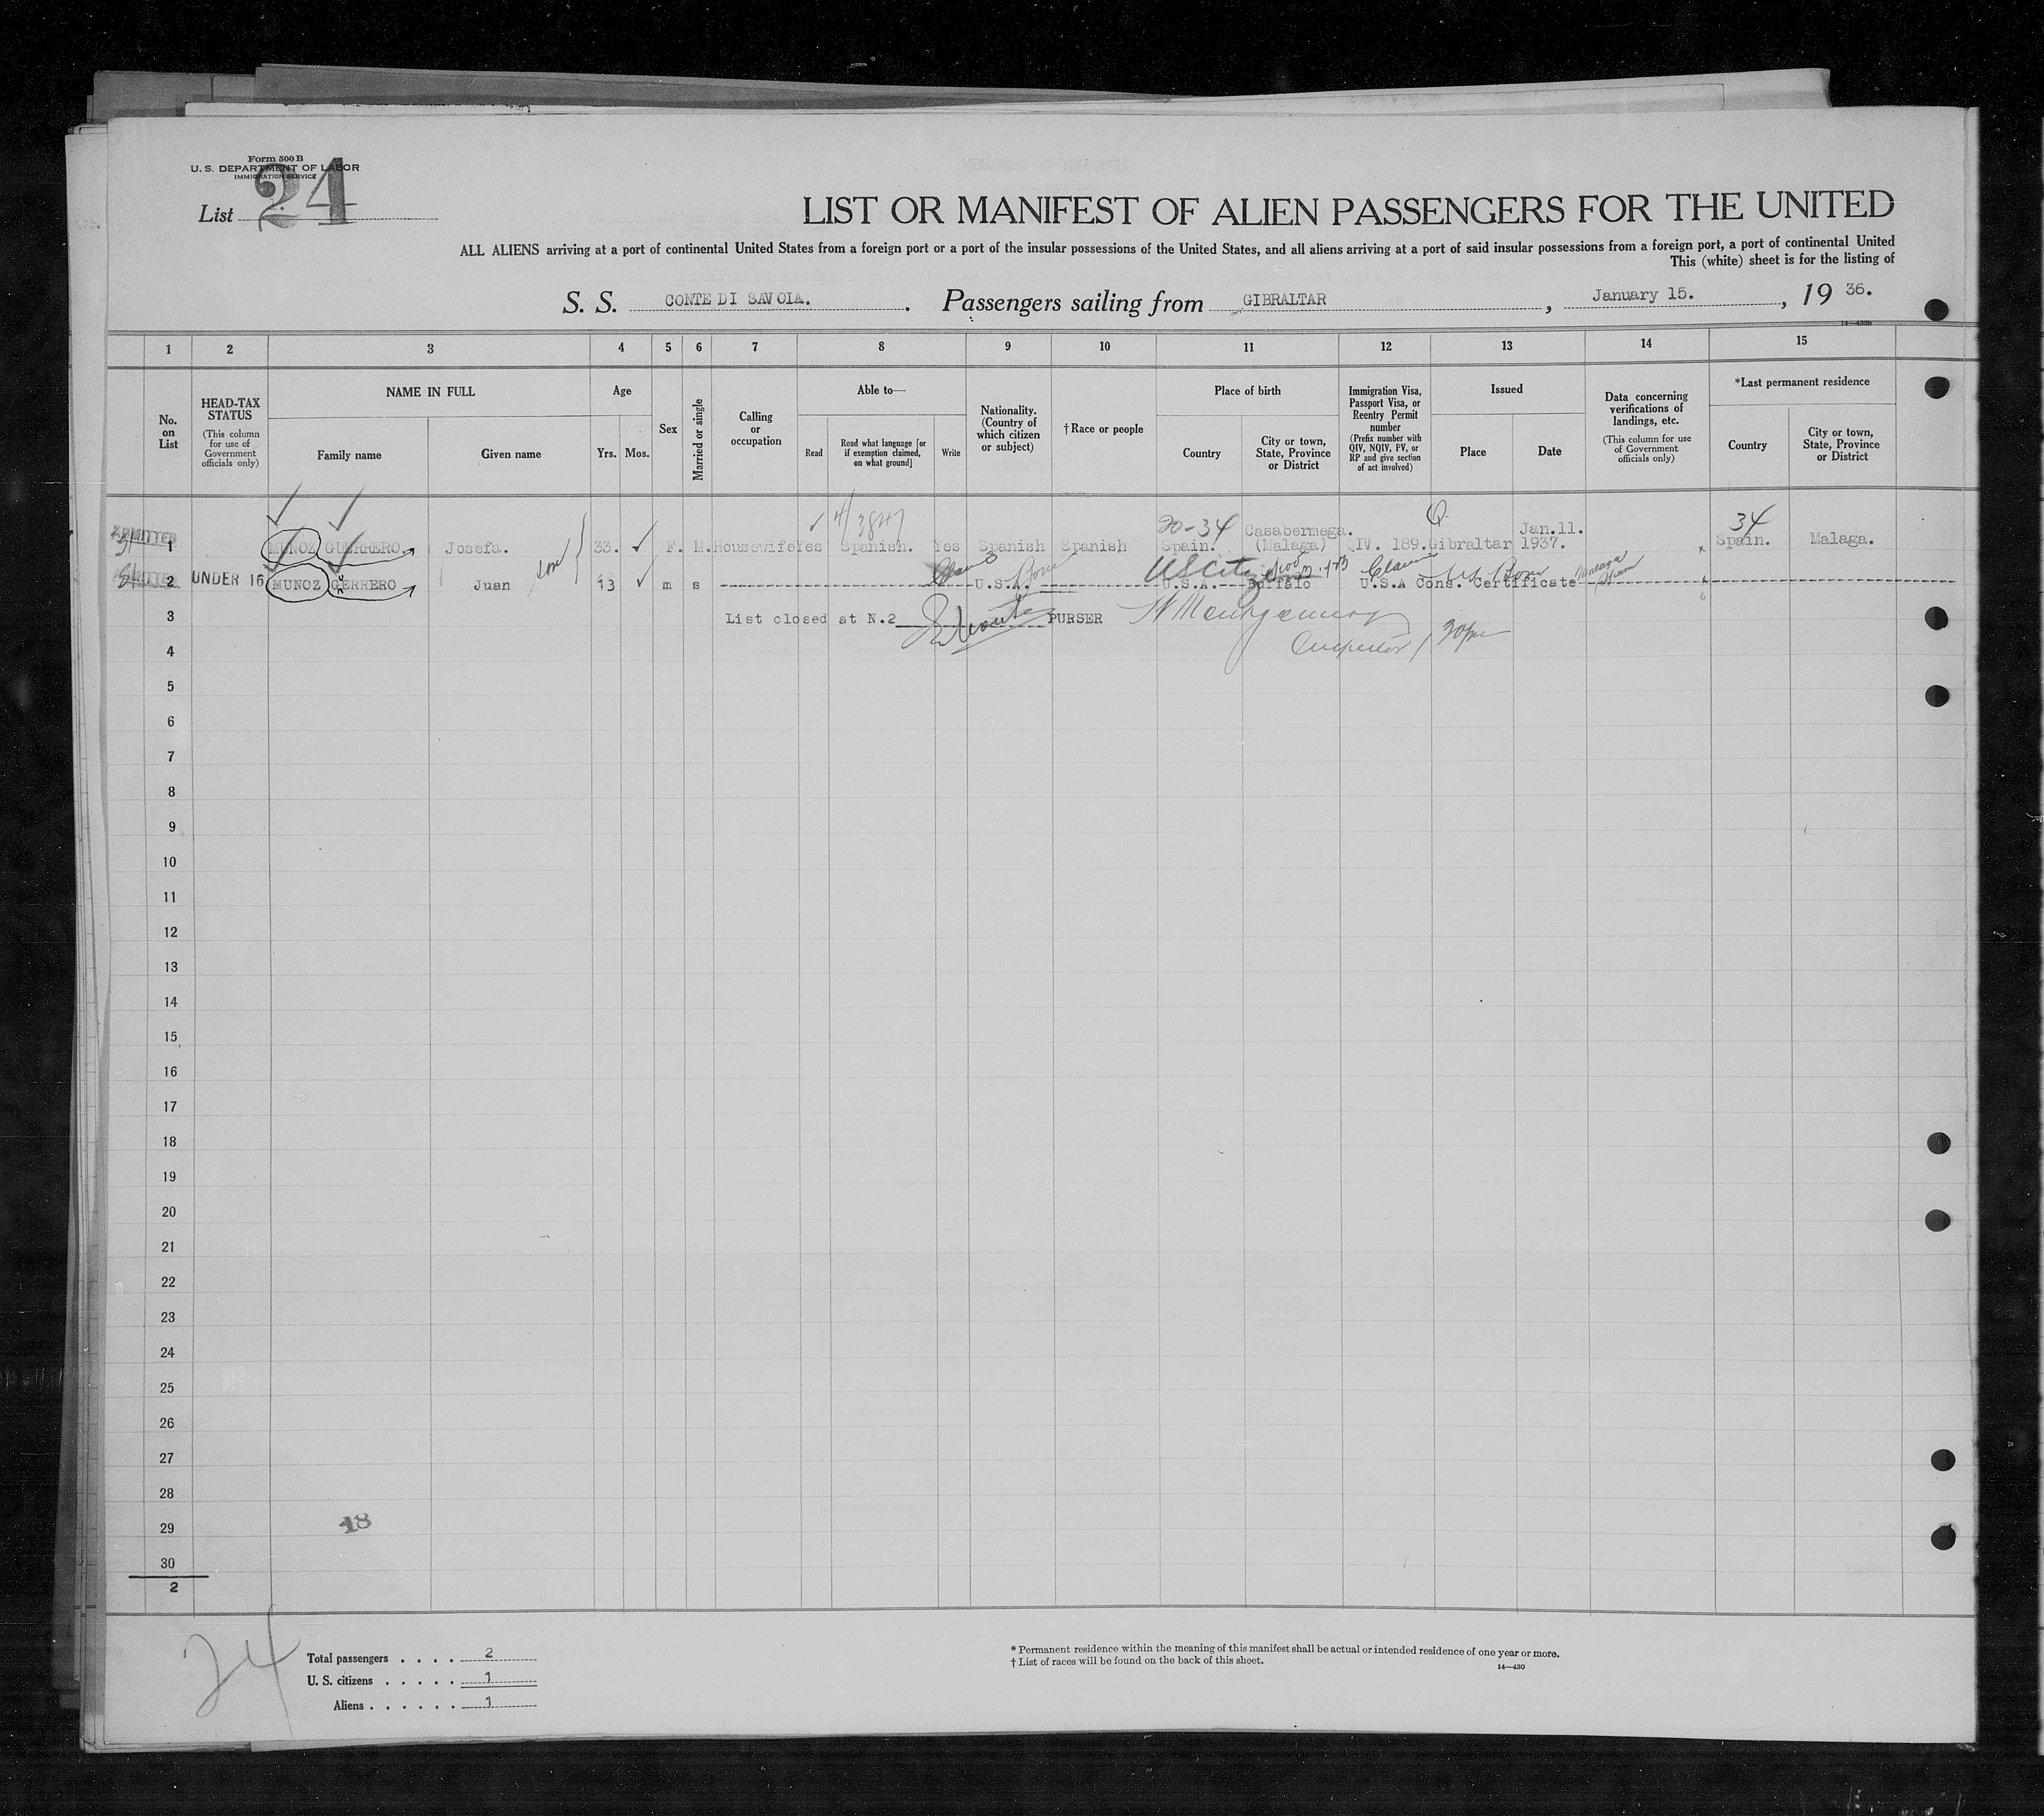 Form 500 B
U. S. DEPARTMENT OF LABOR
IMMIGRATION SERVICE
List 24
LIST OR MANIFEST OF ALIEN PASSENGERS FOR THE UNITED
ALL ALIENS arriving at a port of continental United States from a foreign port or a port of the insular possessions of the United States, and all aliens arriving at a port of said insular possessions from a foreign port, a port of continental United
This (white) sheet is for the listing of
S. S. CONTE DI SAVOIA. . Passengers sailing from GIBRALTAR , January 15. , 19 36.
14—430b
1 2 3 4 5 6 7 8 9 10 11 12 13 14 15
No. on List
HEAD-TAX STATUS
(This column for use of Government officials only)
NAME IN FULL
Family name
Given name
Age
Yrs. Mos.
Sex
Married or single
Calling or occupation
Able to—
Read
Read what language [or if exemption claimed, on what ground]
Write
Nationality. (Country of which citizen or subject)
†Race or people
Place of birth
Country
City or town, State, Province or District
Immigration Visa, Passport Visa, or Reentry Permit number
(Prefix number with QIV, NQIV, PV, or RP and give section of act involved)
Issued
Place
Date
Data concerning verifications of landings, etc.
(This column for use of Government officials only)
*Last permanent residence
Country
City or town, State, Province or District
20-34 Casabermega. Q Jan.11. 34
ADMITTED 1 MUNOZ GUERRERO. Josefa. 33. F. M. Housewife Yes Spanish. Yes Spanish Spanish Spain. (Malaga) QIV. 189. Gibraltar 1937. Spain. Malaga.
son
US Cit Claim US Born Malaga Spain
2 UNDER 16 MUNOZ GERRERO Juan 13 m s U.S.A. U.S.A. Buffalo U.S.A Cons. Certificate
3 List closed at N.2 PURSER W Montgomery
4 Inspector 1 30pm
5
6
7
8
9
10
11
12
13
14
15
16
17
18
19
20
21
22
23
24
25
26
27
28
29 18
30
2
24
Total passengers . . . . 2
U. S. citizens . . . . . 1
Aliens . . . . . . 1
* Permanent residence within the meaning of this manifest shall be actual or intended residence of one year or more.
† List of races will be found on the back of this sheet.
14—430